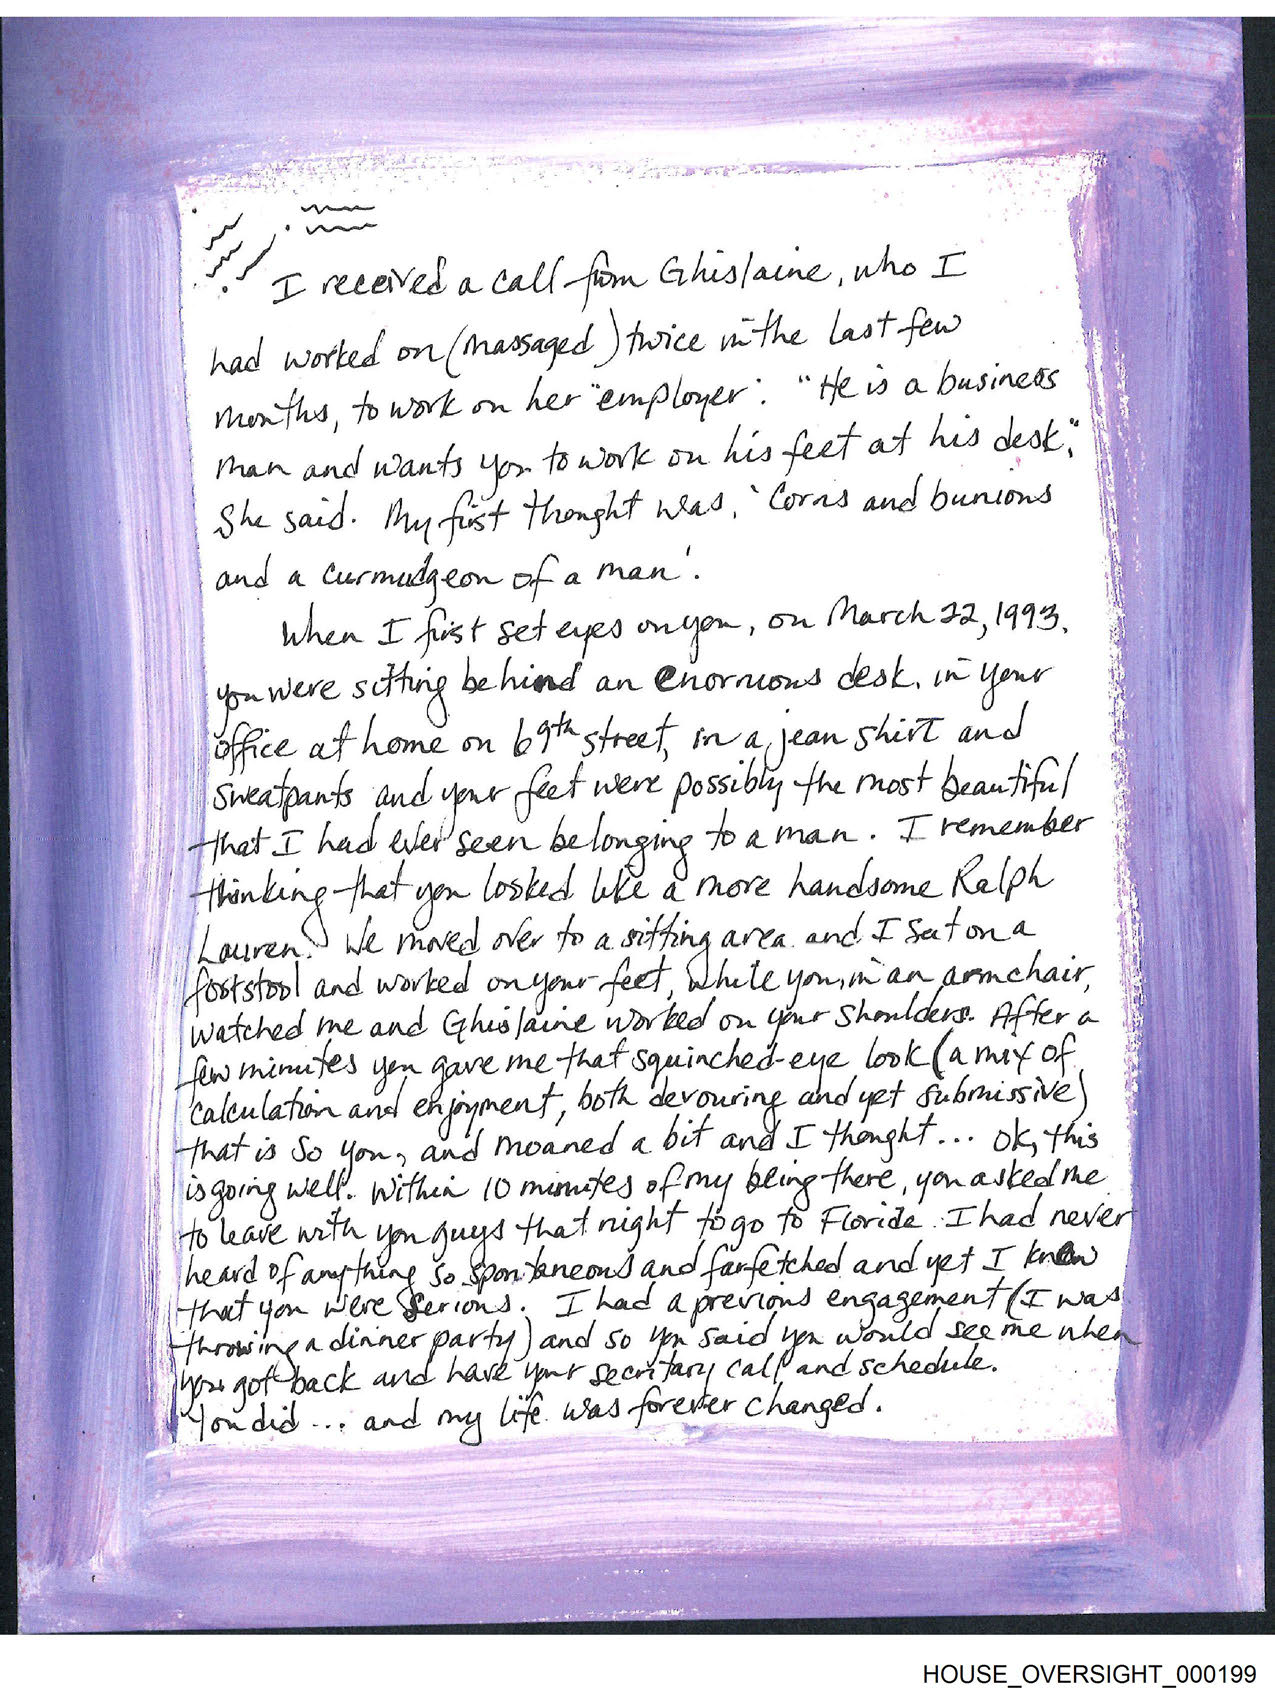 I received a call from Ghislaine, who I
had worked on (massaged) twice in the last few
months, to work on her "employer". "He is a business
man and wants you to work on his feet at his desk",
She said. My first thought was, 'Corns and bunions
and a curmudgeon of a man'.
When I first set eyes on you, on March 22, 1993,
you were sitting behind an enormous desk, in your
office at home on 69th street, in a jean shirt and
sweatpants and your feet were possibly the most beautiful
that I had ever seen belonging to a man. I remember
thinking that you looked like a more handsome Ralph
Lauren. We moved over to a sitting area and I sat on a
footstool and worked on your feet, while you, in an armchair,
watched me and Ghislaine worked on your shoulders. After a
few minutes you gave me that squinched-eye look (a mix of
calculation and enjoyment, both devouring and yet submissive)
that is so you, and moaned a bit and I thought... OK, this
is going well. Within 10 minutes of my being there, you asked me
to leave with you guys that night to go to Florida. I had never
heard of anything so spontaneous and farfetched and yet I knew
that you were serious. I had a previous engagement (I was
throwing a dinner party) and so you said you would see me when
you got back and have your secretary call and schedule.
You did ... and my life was forever changed.
HOUSE_OVERSIGHT_000199